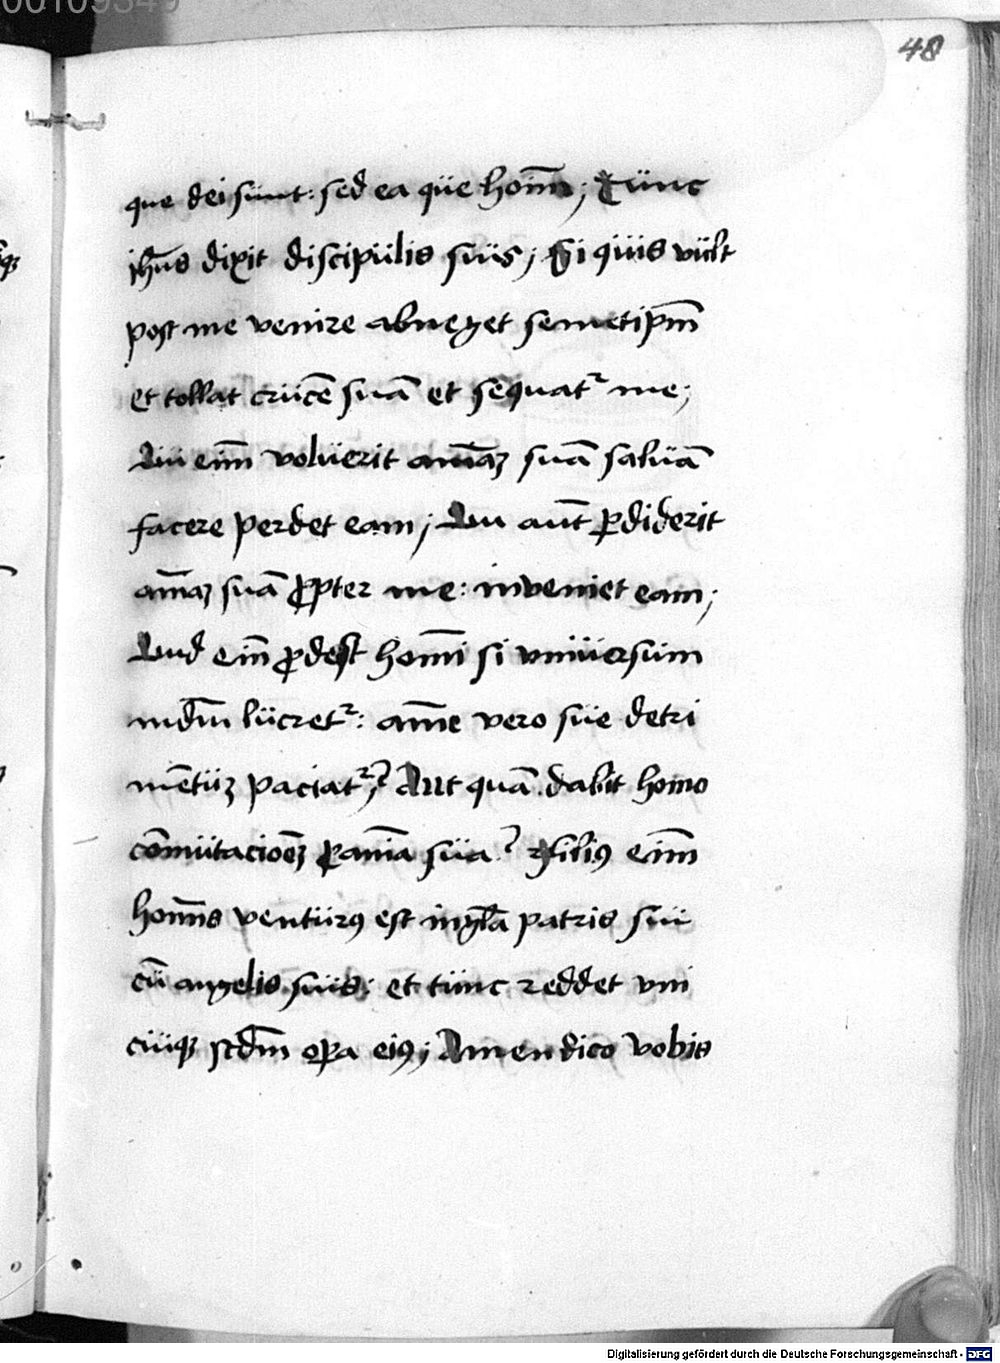 00109349
48
que dei sunt: sed ea que hoīm; Tunc
jhūs dixit discipulis suis; Si quis vult
post me venire abneget semetipm̄
et tollat crucē suā et sequatr me;
Qui eīm voluerit aīaꝫ suā saluā
facere perdet eam; Qui aūt ꝑdiderit
aīaꝫ suā ꝓpter me: inveniet eam;
Quid eīm ꝓdest hoīni si vniuersum
mūdm lucretr: aīme vero sue detri
mētuꝫ paciatr? Aut quā dabit homo
cōmutacioēꝫ ꝓ aīa sua? filiꝰ eīm
hoīnis venturꝰ est in gl̄a patris sui
cū angelis suis; et tunc reddet vni
cuiqꝫ scdm̄ oꝑa eiꝰ; Amen dico vobis
Digitalisierung gefördert durch die Deutsche Forschungsgemeinschaft - DFG